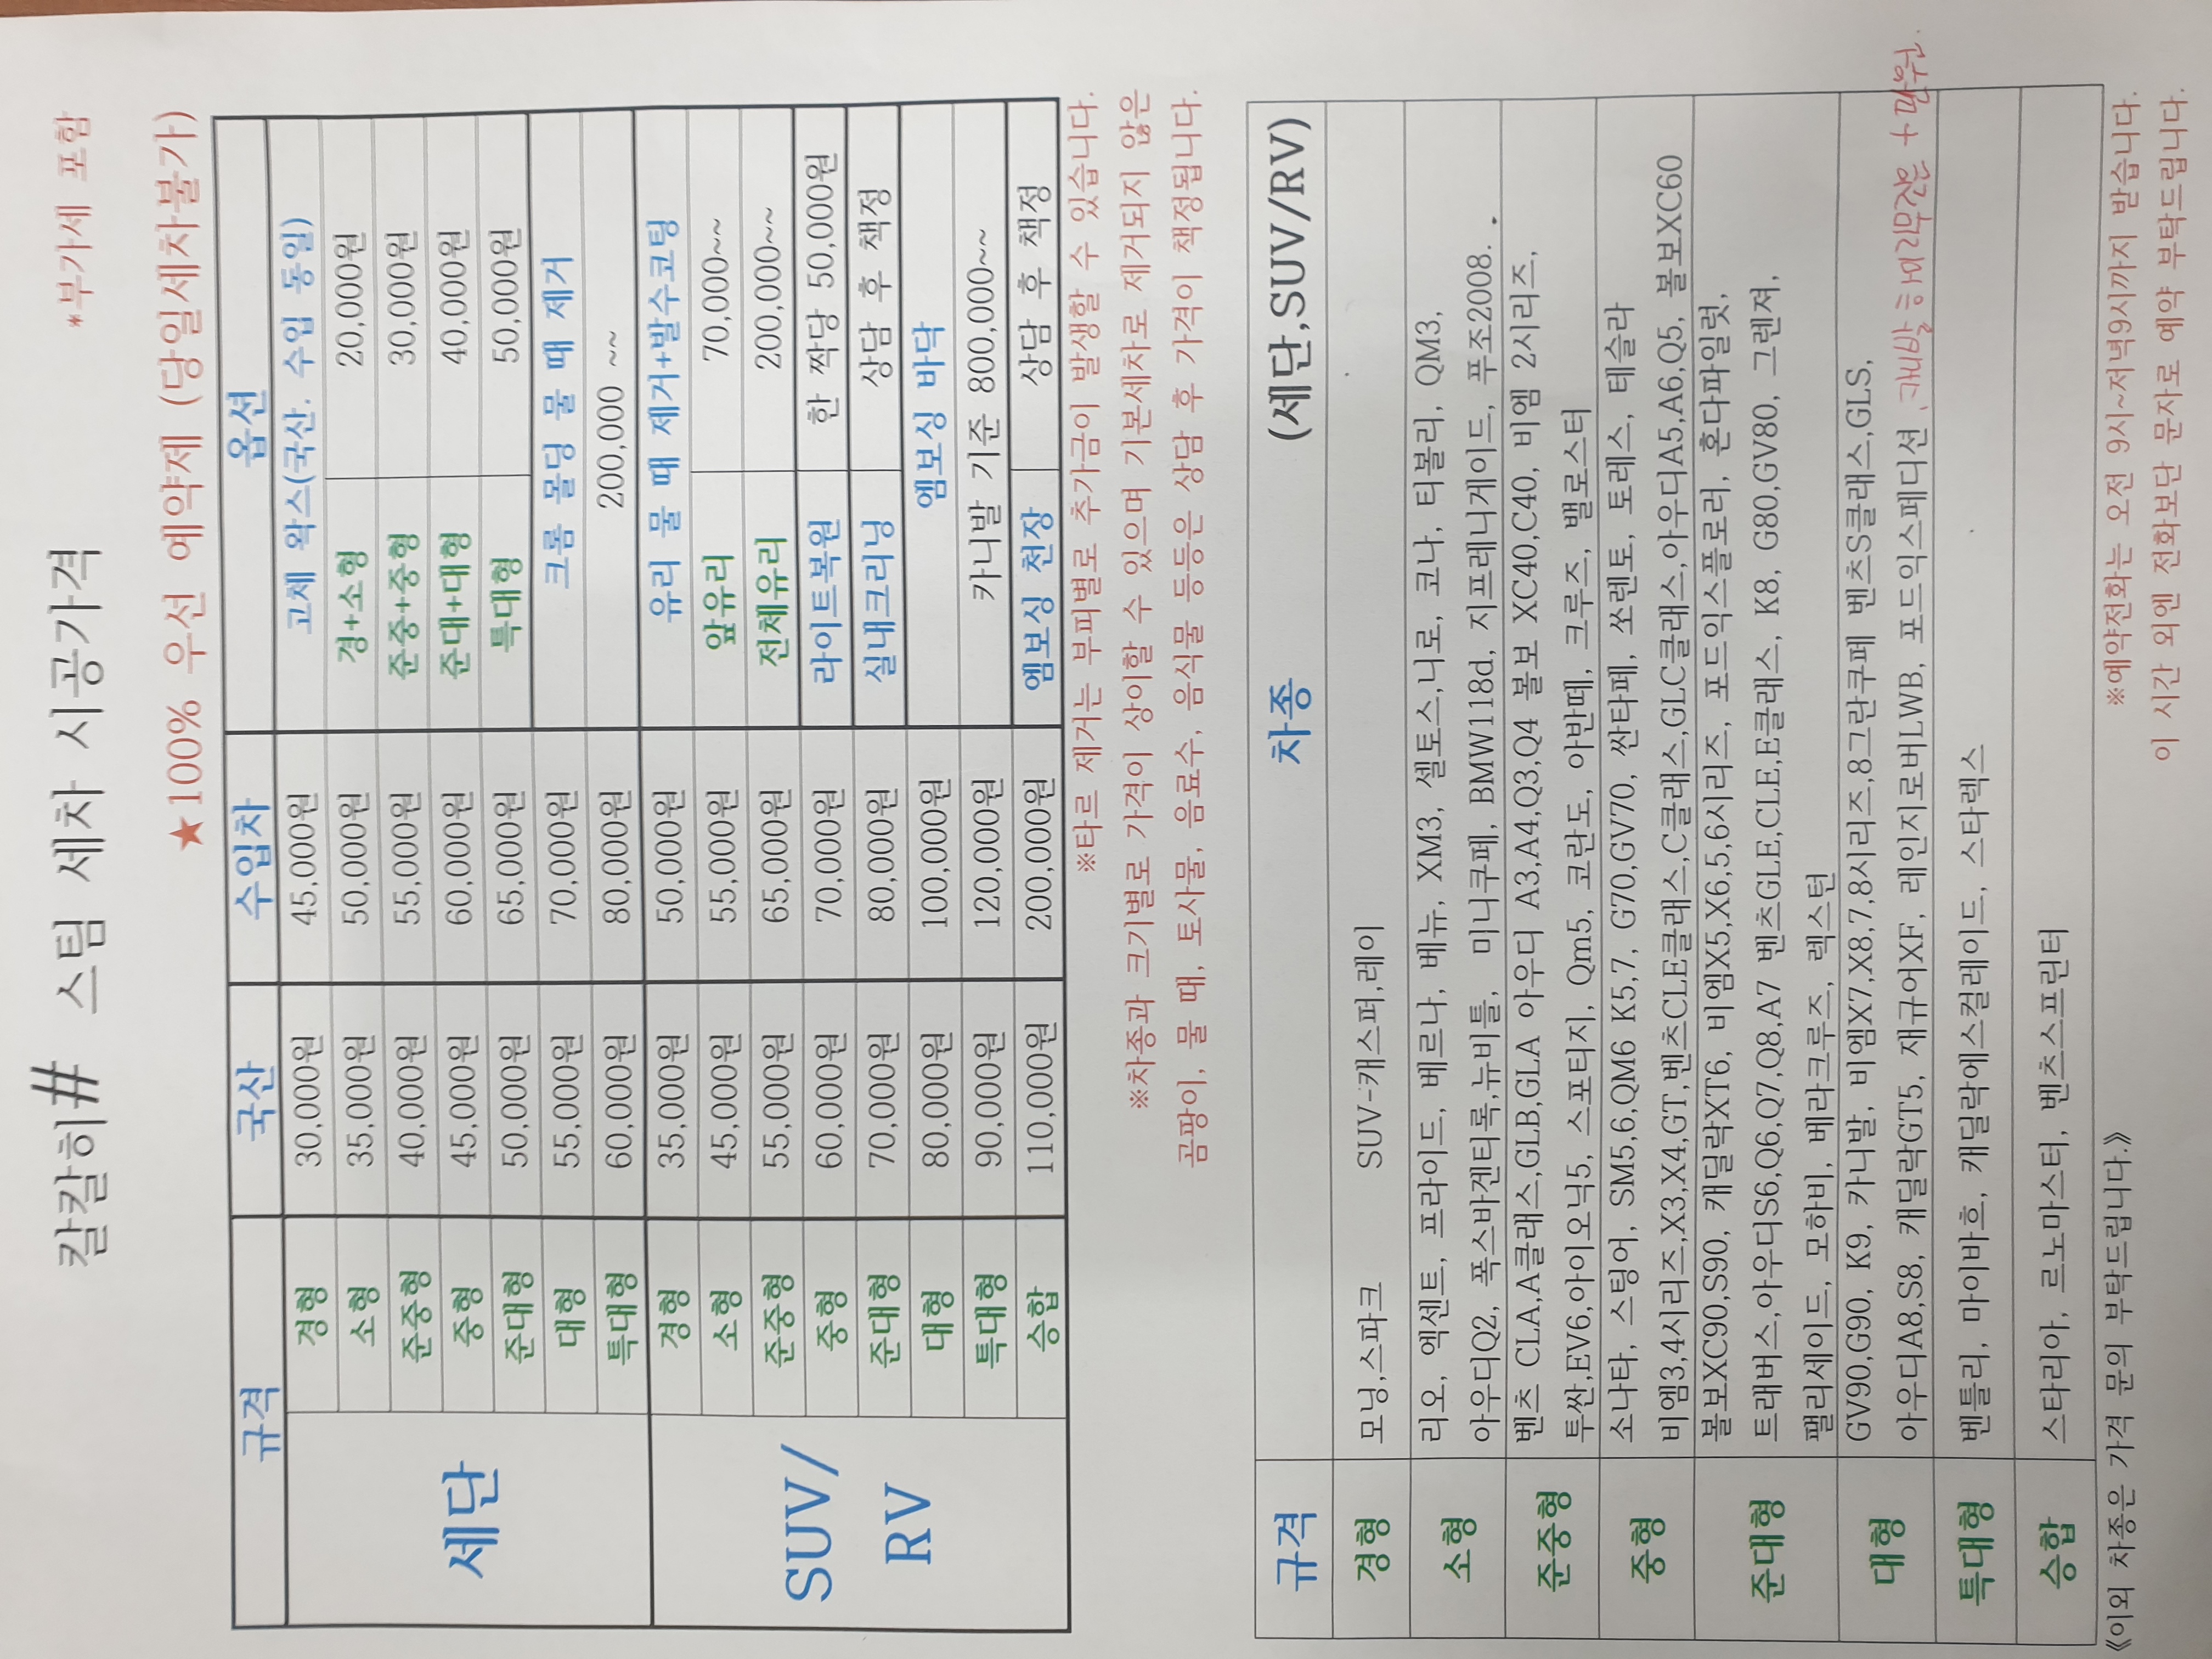 칼칼히# 스팀 세차 시공가격
*부가세 포함
★100% 우선 예약제 (당일세차불가)
규격 국산 수입차 옵션
세단
경형 30,000원 45,000원 고체 왁스(국산. 수입 동일)
소형 35,000원 50,000원 경+소형 20,000원
준중형 40,000원 55,000원 준중+중형 30,000원
중형 45,000원 60,000원 준대+대형 40,000원
준대형 50,000원 65,000원 특대형 50,000원
대형 55,000원 70,000원 크롬 몰딩 물 때 제거
특대형 60,000원 80,000원 200,000 ~~
SUV/
RV
경형 35,000원 50,000원 유리 물 때 제거+발수코팅
소형 45,000원 55,000원 앞유리 70,000~~
준중형 55,000원 65,000원 전체유리 200,000~~
중형 60,000원 70,000원 라이트복원 한 짝당 50,000원
준대형 70,000원 80,000원 실내크리닝 상담 후 책정
대형 80,000원 100,000원 엠보싱 바닥
특대형 90,000원 120,000원 카니발 기준 800,000~~
승합 110,000원 200,000원 엠보싱 천장 상담 후 책정
※타르 제거는 부피별로 추가금이 발생할 수 있습니다.
※차종과 크기별로 가격이 상이할 수 있으며 기본세차로 제거되지 않은
곰팡이, 물 때, 토사물, 음료수, 음식물 등등은 상담 후 가격이 책정됩니다.
규격 차종 (세단,SUV/RV)
경형 모닝,스파크 SUV-캐스퍼,레이
소형 리오, 엑센트, 프라이드, 베르나, 베뉴, XM3, 셀토스,니로, 코나, 티볼리, QM3,
아우디Q2, 폭스바겐티록,뉴비틀, 미니쿠페, BMW118d, 지프레니게이드, 푸조2008.
준중형 벤츠 CLA,A클래스,GLB,GLA 아우디 A3,A4,Q3,Q4 볼보 XC40,C40, 비엠 2시리즈,
투싼,EV6,아이오닉5, 스포티지, Qm5, 코란도, 아반떼, 크루즈, 밸로스터
중형 소나타, 스팅어, SM5,6,QM6 K5,7, G70,GV70, 싼타페, 쏘렌토, 토레스, 테슬라
비엠3,4시리즈,X3,X4,GT,벤츠CLE클래스,C클래스,GLC클래스,아우디A5,A6,Q5, 볼보XC60
준대형 볼보XC90,S90, 캐딜락XT6, 비엠X5,X6,5,6시리즈, 포드익스플로러, 혼다파일럿,
트래버스,아우디S6,Q6,Q7,Q8,A7 벤츠GLE,CLE,E클래스, K8, G80,GV80, 그렌져,
팰리세이드, 모하비, 베라크루즈, 렉스턴
대형 GV90,G90, K9, 카니발, 비엠X7,X8,7,8시리즈,8그란쿠페 벤츠S클래스,GLS,
아우디A8,S8, 캐딜락GT5, 재규어XF, 레인지로버LWB, 포드익스페디션 ,카니발 하이리무진은 +만원.
특대형 벤틀리, 마이바흐, 캐딜락에스컬레이드, 스타렉스
승합 스타리아, 르노마스터, 벤츠스프린터
《이외 차종은 가격 문의 부탁드립니다.》
※예약전화는 오전 9시~저녁9시까지 받습니다.
이 시간 외엔 전화보단 문자로 예약 부탁드립니다.